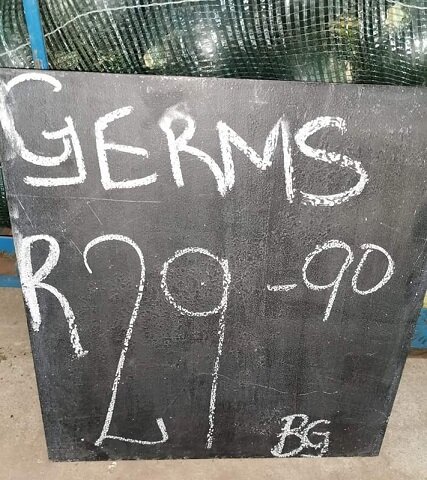 GERMS
R29-90
BG